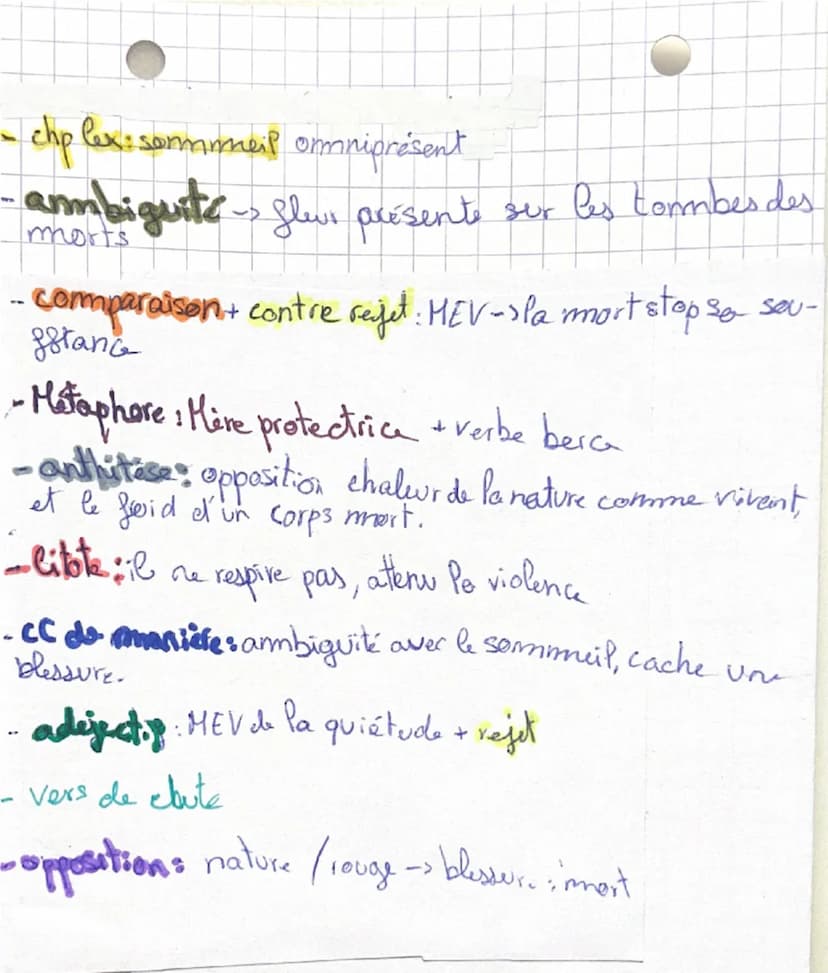 - chp lex : sommmeil omniprésent
- ambiguité -> fleur présente sur les tombes des
morts
- comparaison + contre rejet : MEV -> la mort stop sa sou-
ffrance
- Métaphore : Mère protectrice + verbe berce
- anthitèse : opposition chaleur de la nature comme vivant,
et le froid d'un corps mort.
- litote : il ne respire pas, attenu la violence
- CC de manière : ambiguité avec le sommmeil, cache une
blessure.
- adéject.p : MEV de la quiétude + rejet
- vers de chute
- opposition : nature / rouge -> blessure : mort